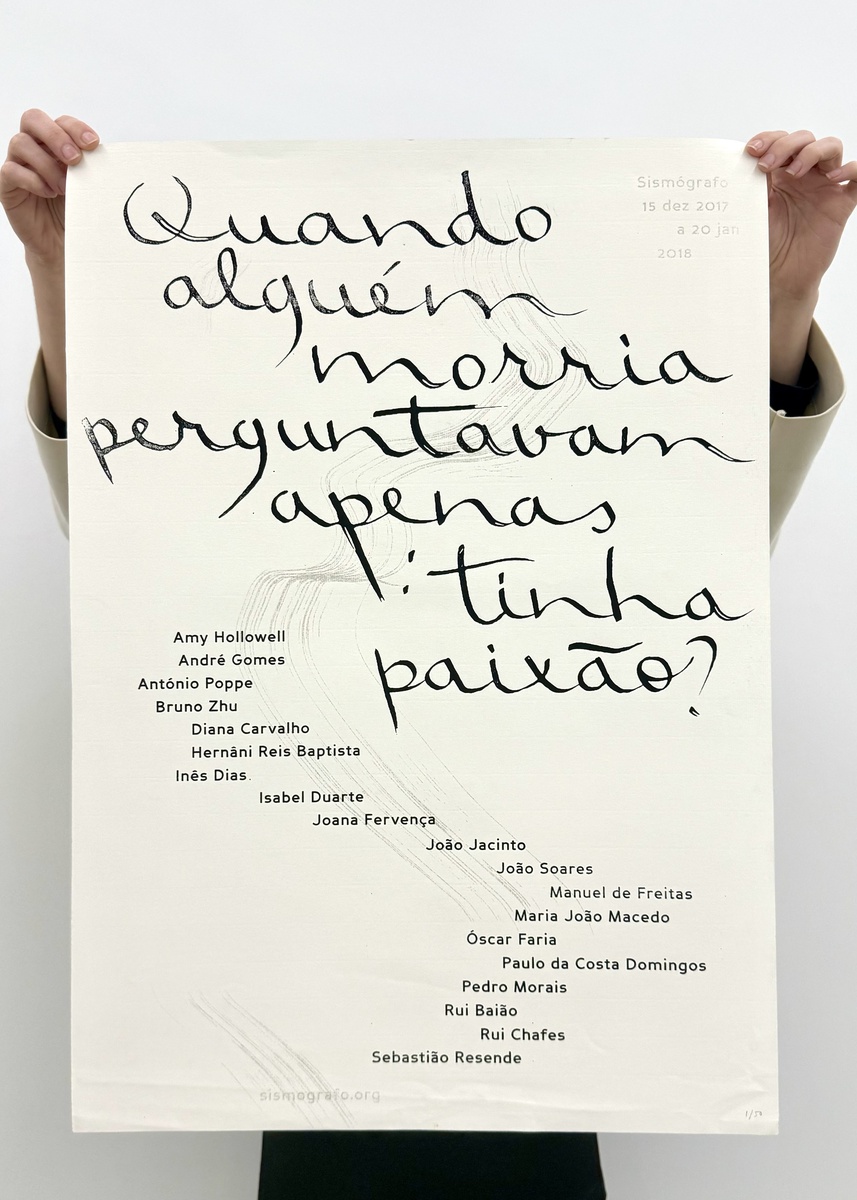 Quando
alguém
morria
perguntavam
apenas
: tinha
paixão?
Sismógrafo
15 dez 2017
a 20 jan
2018
Amy Hollowell
André Gomes
António Poppe
Bruno Zhu
Diana Carvalho
Hernâni Reis Baptista
Inês Dias
Isabel Duarte
Joana Fervença
João Jacinto
João Soares
Manuel de Freitas
Maria João Macedo
Óscar Faria
Paulo da Costa Domingos
Pedro Morais
Rui Baião
Rui Chafes
Sebastião Resende
sismografo.org
1/50